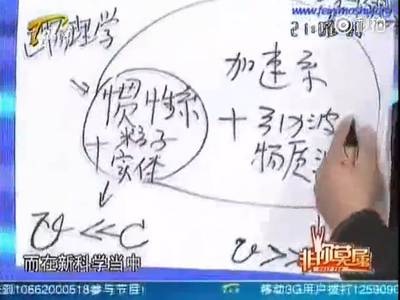 物理学
加速系
惯性系
+引力波
+粒子
物质
实体
v≪C
v≫
而在新科学当中
非你莫属
10662000518参与节目!
移动3G用户拨打1259090